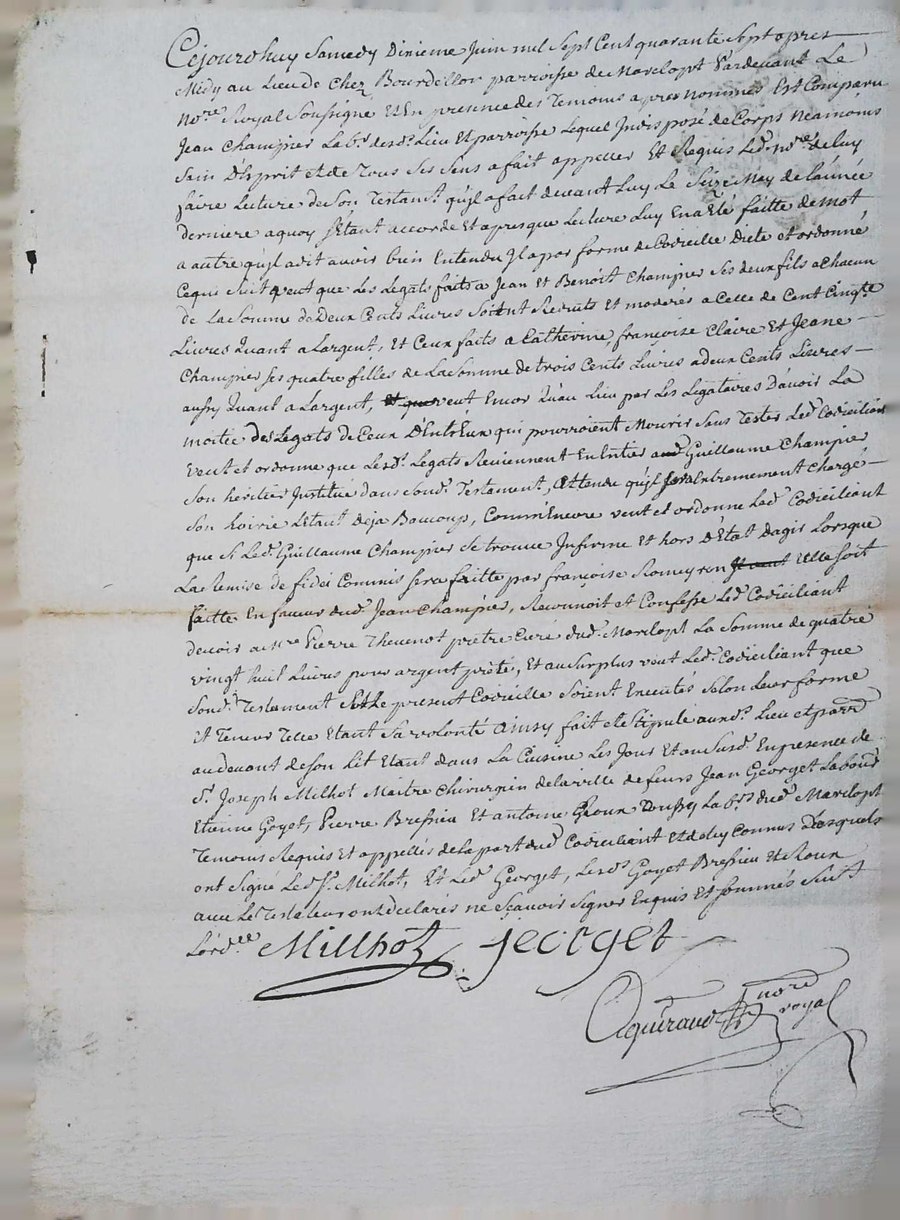 Cejourdhuy Samedy Dixieme Juin mil Sept Cent quarante Sept apres
Midy au Lieu de Chez Bourdellon parroisse de Marclopt Pardevant Le
no.re Royal Soussigné Et En presence des Temoins apres nommés Est Comparu
Jean Champier Le b.r desd. Lieu Et parroisse Lequel Indisposé de Corps Neamoins
Sain D'Esprit et de Tous Ses Sens a fait appeller Et Requis Led. no.re de luy
faire Lecture de Son Testam.t qu'jl a fait devant Luy Le Seize May de l'année
derniere a quoy S'Etant accordé Et apres que Lecture Luy En a Eté faitte de mot
a autre qu'jl a dit avoir bien Entendu Jl a par forme de Codicille Dicté et ordonné
Ce qui Suit veut que Les Legats faits a Jean Et Benoit Champier Ses deux fils a Chacun
de La Somme de Deux Cents Livres Soient Reduits Et moderés a Celle de Cent Cinq.te
Livres Quant a Largent, Et Ceux faits a Catherine françoise Claire Et Jeane
Champier Ses quatre filles de La Somme de trois Cents Livres a deux Cents Livres
aussy Quant a Largent, Et que veut Encor Qu'au Lieu par Les Legataires D'avoir La
moitié des Legats de Ceux D'EntrEux qui pourroient Mourir Sans Tester Led. Codiciliant
veut et ordonne que Lesd. Legats Reviennent En Entier aud. Guillaume Champier
Son heritier Institué dans Sond. Testament, Attendu qu'jl Sera Entremement Chargé
Son hoirie L'Etant Deja Baucoup, Comm'Encore veut et ordonne Led. Codiciliant
que Si Led. Guillaume Champier Se trouve Infirme Et hors D'Etat D'agir Lorsque
La Remise de fidei Commis Sera faitte par françoise Romeyron Elle Soit
faitte En faveur dud. Jean Champier, Reconnoit et Confesse Led. Codiciliant
devoir a M.re Pierre Thevenot prêtre Curé dud. Marclopt La Somme de quatre
vingt huit Livres pour argent prêté, Et au Surplus veut Led. Codiciliant que
Sond. Testament Et Le present Codicille Soient Executés Selon Leur forme
Et Teneur Telle Etant Sa volonté ainsy fait et Stipulé auxd. Lieu et parr.e
au devant de Son Lit Etant dans La Cuisine Les Jour Et an Susd. En presence de
S.r Joseph Milhot Maitre Chirurgien de la ville de feurs Jean Georget Labour
Etienne Goyet, Pierre Bressieu Et antoine Roux Lab.rs dud. Marclopt
Temoins Requis Et appellés de la part dud. Codiciliant Et de luy Connus Desquels
ont Signé Led. S.r Milhot, Et Led. Georget, Lesd. Goyet Bressieu Et Roux
avec Le Testateur ont declarés ne Scavoir Signer Enquis Et Sommés Suiv.t
L'ord.ce Milhot jeorget
no.re
royal